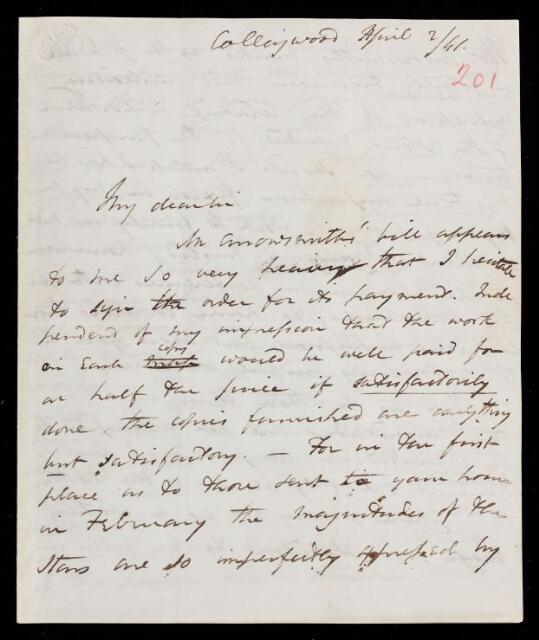 Collingwood April 2/41.
201
My dear Sir
Mr Arrowsmith's bill appears
to me so very heavy that I hesitate
to sign the order for its payment. Inde
pendent of my impression that the work
in Each copy would be well paid for
at half the price if satisfactorily
done. the copies furnished are anything
but satisfactory. — For in the first
place as to those sent to your home
in February the magnitudes of the
stars are so imperfectly expressed by